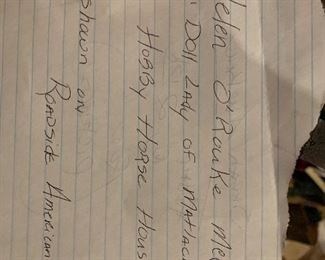 elen O'Rourke Me
" Doll Lady of Matlac
Hobby Horse Hous
shown on
Roadside American